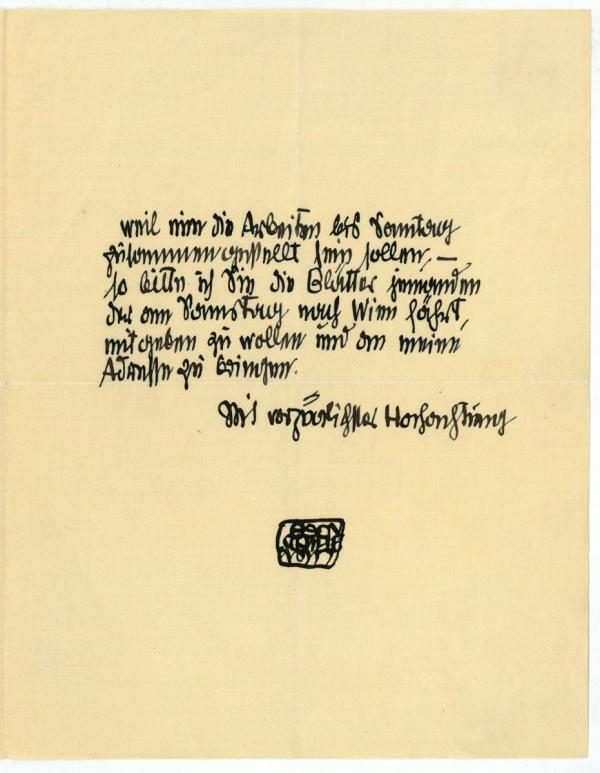 weil nun die Arbeiten bis Sonntag
zusammengestellt sein sollen, —
so bitte ich Sie die Blätter jemanden
der am Samstag nach Wien fährt,
mitgeben zu wollen und an meine
Adresse zu bringen.
Mit vorzüglichster Hochachtung
EGON
SCHIELE